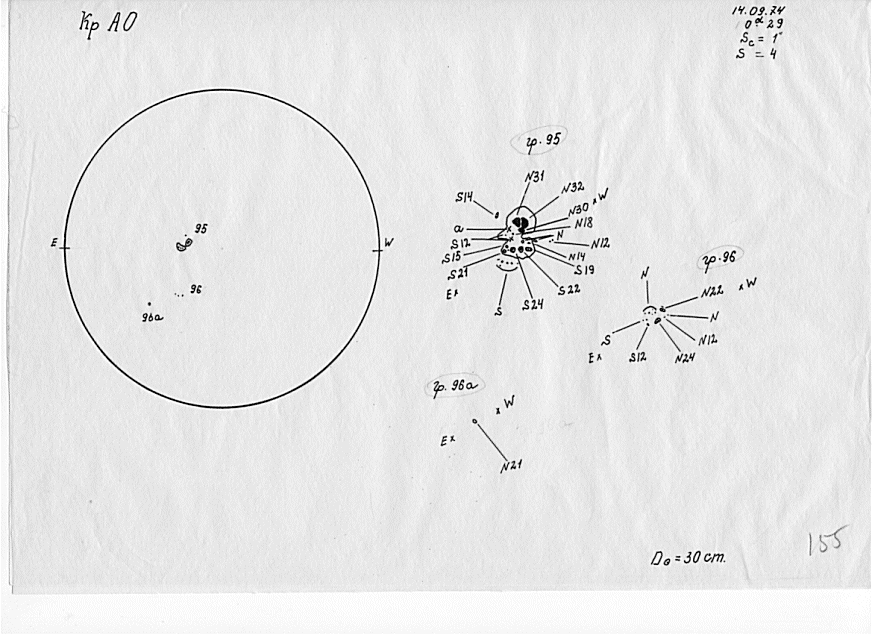 Кр АО
14.09.74
0ᵈ 29
Sc = 1"
S = 4
гр. 95
N31
N32
S14
W
N30
a
N18
S12
N
N12
S15
N14
S21
S19
E
S22
S24
S
E
W
95
96
96a
гр. 96
N
N22
W
N
S
N12
E
S12
N24
гр. 96a
W
E
N21
D⊙ = 30 cm.
155